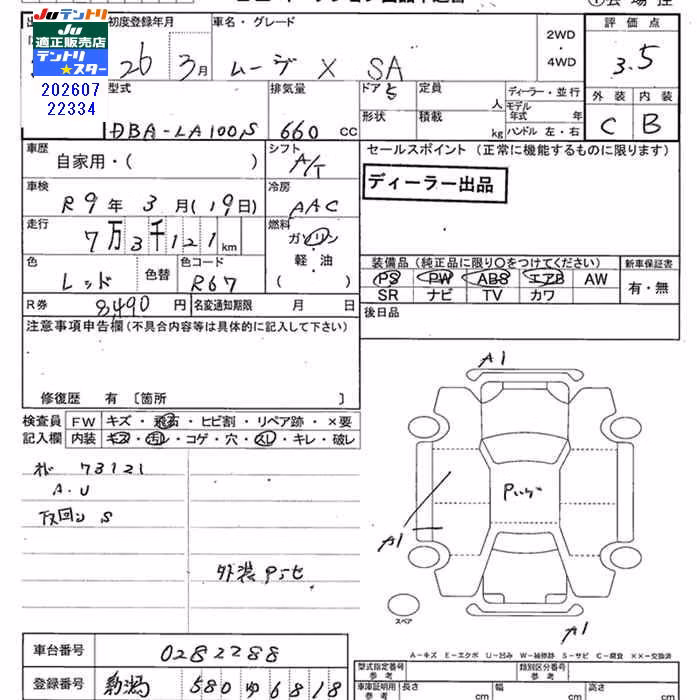 JUテントリ
JU
適正販売店
テントリ
★スター
202607
22334
初度登録年月
26 3月
車名・グレード
ムーヴ X SA
2WD
・
4WD
評価点
3.5
外装 内装
C B
型式
DBA-LA100S
排気量
660 cc
ドア 5
形状
定員
人
積載
kg
ディーラー・並行
モデル年式 年
ハンドル 左・右
車歴
自家用・( )
シフト
A/T
セールスポイント (正常に機能するものに限ります)
ディーラー出品
車検
R9年 3月(19日)
冷房
AAC
走行
7万3千121km
燃料
ガソリン
軽・油
( )
色
レッド
色替
色コード
R67
装備品 (純正品に限り○をつけてください)
新車保証書
PS PW ABS エアB AW
SR ナビ TV カワ
有・無
R券 8,490円
名変通知期限 月 日
後日品
注意事項申告欄(不具合内容等は具体的に記入して下さい)
修復歴 有 〔箇所 〕
検査員
記入欄
FW キズ・飛石・ヒビ割・リペア跡・×要
内装 キズ・汚レ・コゲ・穴・スレ・キレ・破レ
73121
A.U
下回り S
A1
A1
A1
スペア
A-キズ E-エクボ U-凹み W-補修跡 S-サビ C-腐食 XX-交換済
車台番号 0282288
登録番号 新潟 580 ゆ 6818
型式指定番号
参考
類別区分番号
参考
車庫証明用
参考
長さ cm
幅 cm
高さ cm